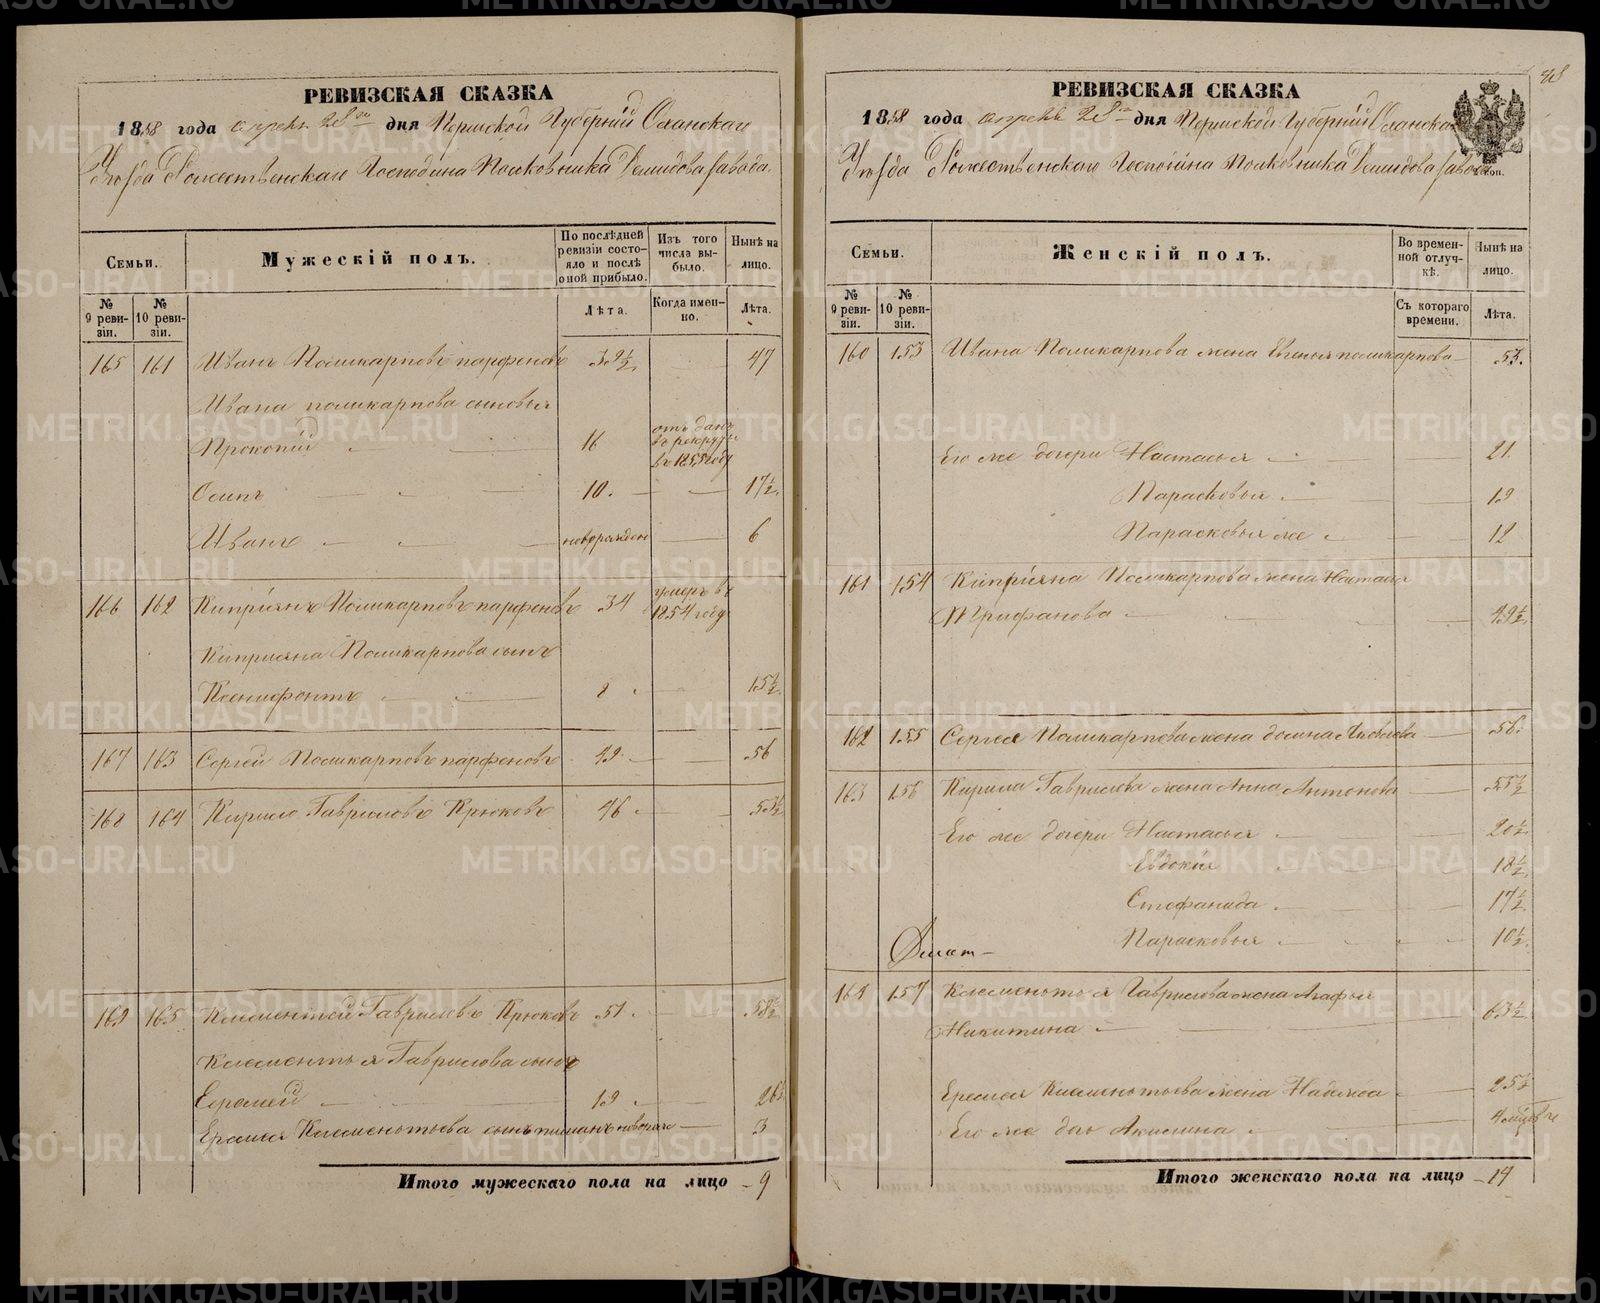 РЕВИЗСКАЯ СКАЗКА
1858 года апрель 28го дня Пермской Губерніи Осинскаго
Уѣзда Рожественскаго Господина Полковника Демидова завода.
Семьи.
Мужескій полъ.
По послѣдней ревизіи состояло и послѣ оной прибыло.
Изъ того числа выбыло.
Нынѣ на лицо.
№ 9 ревизіи.
№ 10 ревизіи.
Лѣта.
Когда именно.
Лѣта.
165 161 Иванъ Поликарповъ парфеновъ 39½ 47
Ивана поликарпова сыновья
Прокопій 16 отъ данъ въ рекруты въ 1855 году
Осипъ 10. 17½.
Иванъ новорожден 6
166 162 Кипріянъ Поликарповъ парфеновъ 34 умеръ въ 1854 году
Кипріяна Поликарпова сынъ
Ксенифонтъ 8 15½.
167 163 Сергей Поликарповъ парфеновъ 49 56
168 164 Кирило Гавриловъ Крюковъ 46 53½
169 165 Клементей Гавриловъ Крюковъ 51 58½
Клементья Гаврилова сынъ
Еремей 19 26½
Еремея Клементьева сынъ 3
Итого мужескаго пола на лицо 9
48
РЕВИЗСКАЯ СКАЗКА
1858 года апреля 28го дня Пермской Губерніи Осинскаго
Уѣзда Рожественскаго Господина Полковника Демидова завода
коп.
Семьи.
Женскій полъ.
Во временной отлучкѣ.
Нынѣ на лицо.
№ 9 ревизіи.
№ 10 ревизіи.
Съ котораго времени.
Лѣта.
160 153 Ивана Поликарпова жена Евгенья поликарпова 53.
Его же дочери Настасья 21.
Парасковья 19
Парасковья же 12
161 154 Кипріяна Поликарпова жена Настасья
Трифанова 49½
162 155 Сергея Поликарпова жена Домна Яковлева 58.
163 156 Кирила Гаврилова жена Анна Антонова 55½
Его же дочери Настасья 20½
Евдокія 18½
Стефанида 17½
Парасковья 10½
164 157 Клементья Гаврилова жена Агафья
Никитина 63½
Еремея Клементьева жена Надежда 25½
Его же дочь Акилина 4
Итого женскаго пола на лицо 14
METRIKI.GASO-URAL.RU